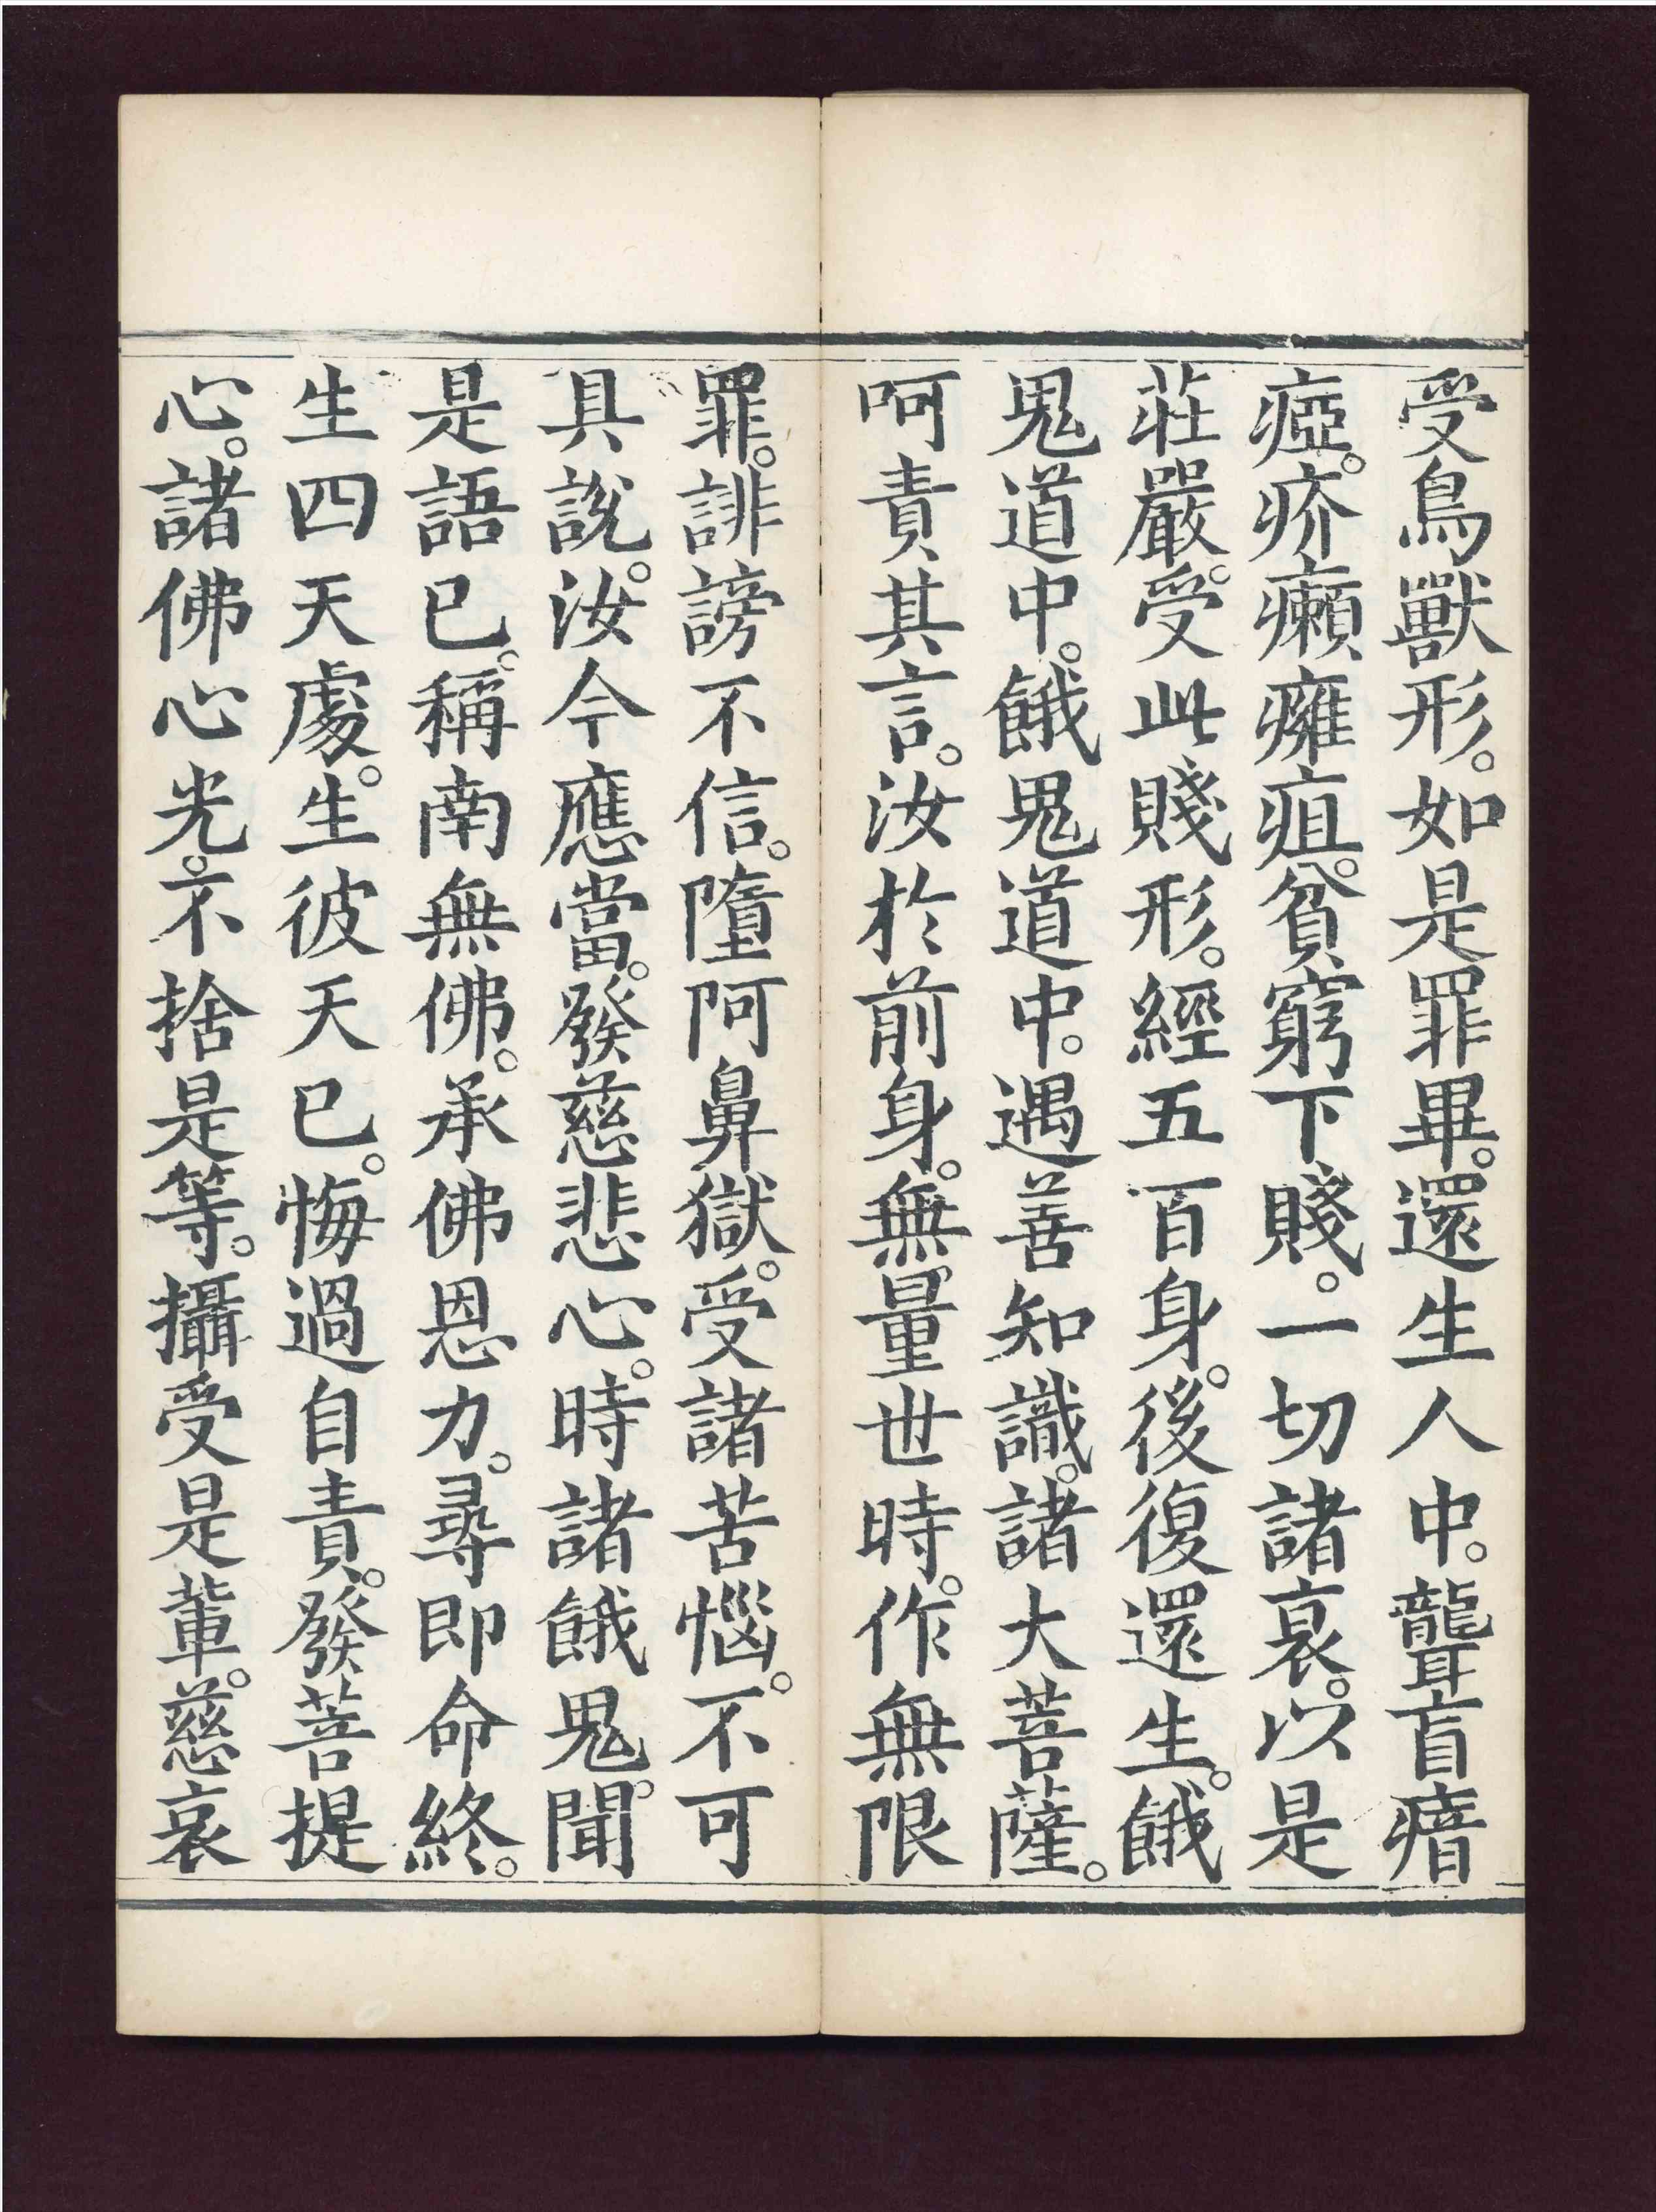 受鳥獸形。如是罪畢。還生人中。聾盲瘖
瘂。疥癩癰疽。貧窮下賤。一切諸衰。以是
莊嚴。受此賤形。經五百身。後復還生。餓
鬼道中。餓鬼道中。遇善知識。諸大菩薩。
呵責其言。汝於前身。無量世時。作無限
罪。誹謗不信。墮阿鼻獄。受諸苦惱。不可
具說。汝今應當。發慈悲心。時諸餓鬼。聞
是語已。稱南無佛。承佛恩力。尋即命終。
生四天處。生彼天已。悔過自責。發菩提
心。諸佛心光。不捨是等。攝受是輩。慈哀